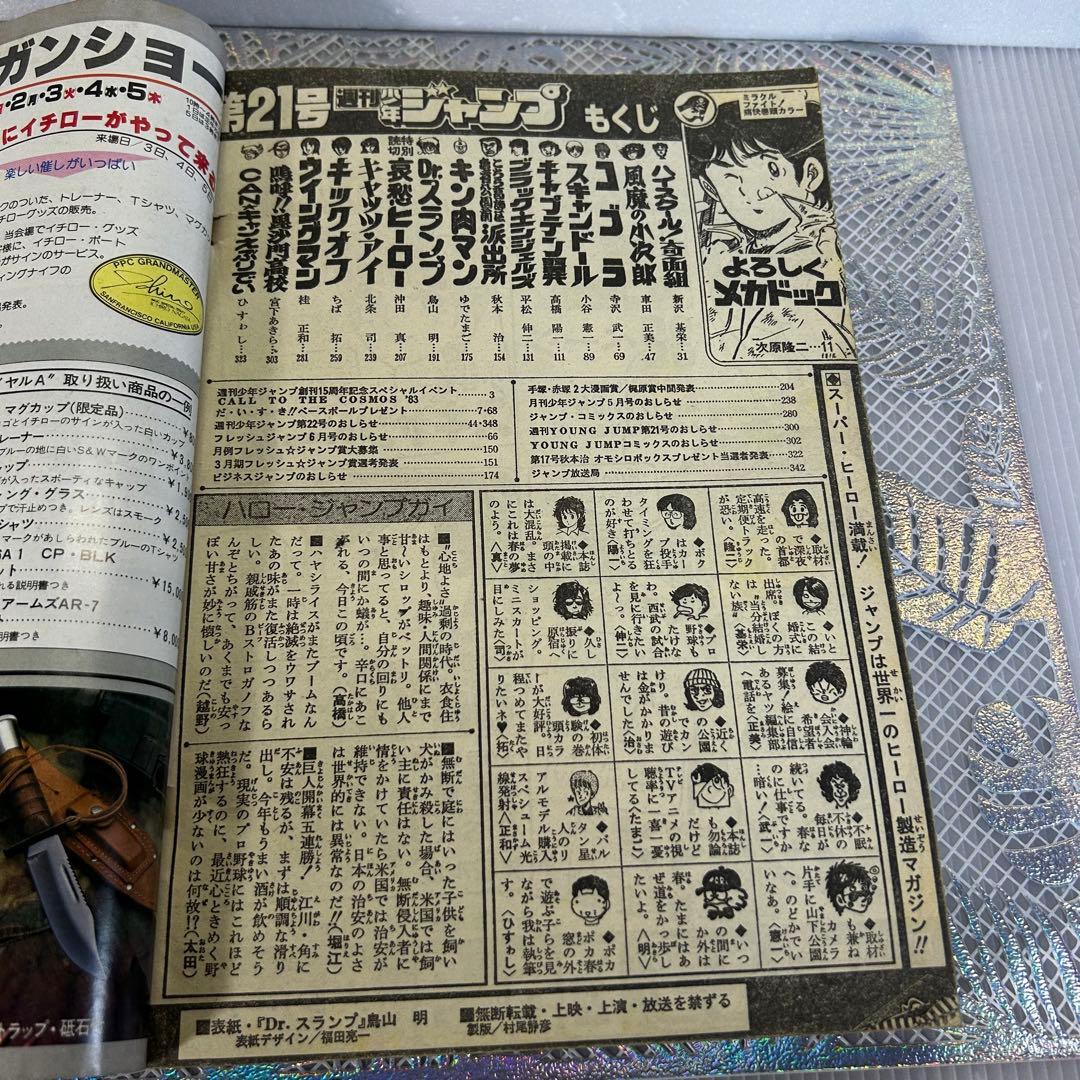 第21号 週刊少年ジャンプ もくじ
ミラクル
ファイト!
痛快巻頭カラー
よろしく
メカドック
次原隆二…11
ハイスクール!奇面組 新沢 基栄・31
風魔の小次郎 車田 正美・47
コブラ 寺沢 武一・69
スキャンドール 小谷 憲一・89
キャプテン翼 高橋 陽一・111
ブラック・エンジェルズ 平松 伸二・131
こちら葛飾区亀有公園前派出所 秋本 治・154
キン肉マン ゆでたまご・175
Dr.スランプ 鳥山 明・191
特別読切 哀愁ヒーロー 沖田 真・207
キャッツ・アイ 北条 司・239
キックオフ ちば 拓・259
ウイングマン 桂 正和・281
嗚呼!!毘沙門高校 宮下あきら・303
CAN・キャンえぽりてぃ ひすゎし・323
週刊少年ジャンプ創刊15周年記念スペシャルイベント
CALL TO THE COSMOS '83 3
だ・い・す・き!!ベースボールプレゼント 7・68
週刊少年ジャンプ第22号のおしらせ 44・348
フレッシュジャンプ6月号のおしらせ 66
月例フレッシュ☆ジャンプ賞大募集 150
3月期フレッシュ☆ジャンプ賞選考発表 151
ビジネスジャンプのおしらせ 174
手塚・赤塚2大漫画賞/梶原賞中間発表 204
月刊少年ジャンプ5月号のおしらせ 238
ジャンプ・コミックスのおしらせ 280
週刊YOUNG JUMP第21号のおしらせ 300
YOUNG JUMPコミックスのおしらせ 302
第17号秋本治 オモシロボックスプレゼント当選者発表 322
ジャンプ放送局 342
◆スーパー・ヒーロー満載! ジャンプは世界一のヒーロー製造マガジン!!
◆取材で深夜の首都高速を走った。定期便トラックが恐い。〈隆二〉
◆ボクはカープ投手タイミングを狂わせて打ちとるのが好き〈陽一〉
◆本誌掲載に頭の中は大混乱。まさにこれは春の夢のよう。〈真〉
◆いとこの結婚式に出席。ぼくの方は"当分結婚しない族"〈基栄〉
◆プロ野球もたけなわ、西武の試合よく見に行きたいなーっ。〈伸二〉
◆久し振りに原宿へショッピング。ミニスカートが目にしみた〈司〉
◆神輪会入会希望者募集!絵に自信あるヤツ編集部へ電話を〈正美〉
◆近くの公園でカンけり。昔の遊びは金がかかりませんでした〈治〉
◆初体験の巻頭カラーが大好評。日程つめてまたやりたいネ♥〈拓〉
◆不眠不休の毎日が続いてる。春なのに仕事ですか…暗い!〈武一〉
◆本誌も勿論だけどTVアニメの視聴率に一喜一憂してる〈たまご〉
◆バルタン星人のリアルモデル購入スペシューム光線発射!〈正和〉
◆取材も兼ねカメラ片手に山下公園へ。のどかでいいなあ。〈憲一〉
◆いつの間にか外は春。たまにはあぜ道をかっ歩したいよ。〈明〉
◆ポカポカ春、窓の外で遊ぶ子らを見ながら我は執筆す。〈ひすゎし〉
ハロー・ジャンプガイ
■"心地よさ"過剰の時代。衣食住はもとより、趣味・人間関係にまで甘〜いシロップがベットリ。他人事と思ってると、自分の回りにもいつの間にか蟻が…。辛口にあこがれる、今日この頃です。〈高橋〉
■ハヤシライスがまたブームなんだって。一時は絶滅をウワサされたあの味がまた復活しつつあるらしい。親戚筋のBストロガフなんぞとちがって、あくまでも安っぽい甘さが妙に懐しいのだ〈越野〉
■無断で庭にはいった子供を飼い犬がかみ殺した場合、米国では飼い主に責任はない。無断侵入者に情をかけていたら米国では治安が維持できない。日本の治安のよさは世界的には異常なのだ!!〈堀江〉
■巨人開幕五連勝! 江川・角に不安は残るが、まずは順調な滑り出し。今年もうまい酒が飲めそうだ。現実のプロ野球にはこれほど熱狂するのに、最近心ときめく野球漫画が少ないのは何故!?〈太田〉
■表紙・『Dr.スランプ』鳥山 明
表紙デザイン/福田亮一
■無断転載・上映・上演・放送を禁ずる
製版/村尾静彦
ガンショー
・2月・3火・4水・5木
にイチローがやって来
来場日/3日、4日、5
楽しい催しがいっぱい
クのついた、トレーナー、Tシャツ、マグカ
チローグッズの販売。
当会場でイチロー・グッズ
客様に、イチロー・ポート
がサインのサービス。
ィングナイフの
発表。
PPC GRANDMASTER
SANFRANCISCO CALIFORNIA USA
イヤルA"取り扱い商品の一例
マグカップ(限定品)
ゴとイチローのサインが入った白いカップ
レーナー
ブルーの地に白いS&Wマークのワンポイン
ャップ
が入ったスポーティなキャップ
ング・グラス
プで汗止めつき。レンズはスモーク
シャツ
マークがあしらわれたブルーのTシャツ
GA1 CP・BLK
ット ¥15,00
れる説明書つき
アームズAR-7
¥8,00
明書つき
トラップ・砥石